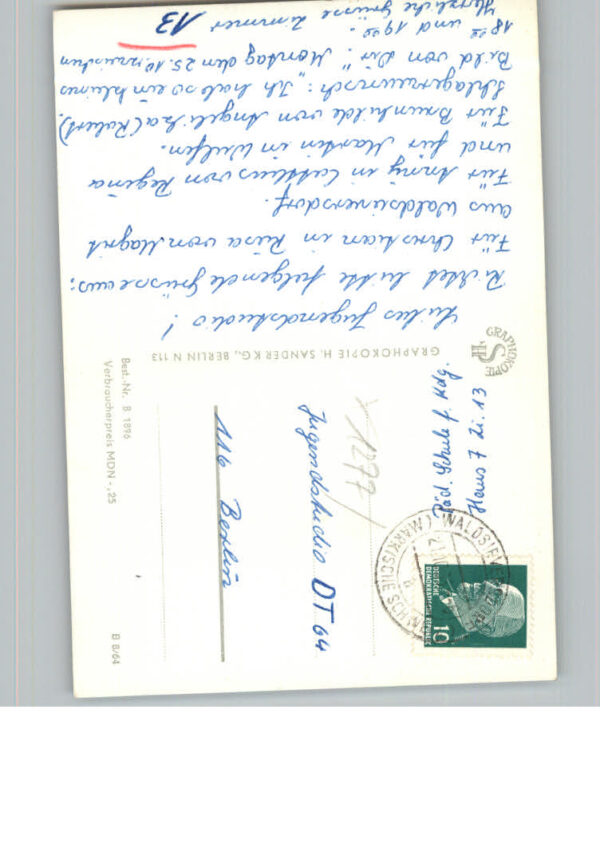 Liebes Jugendstudio!
Richtet bitte folgende Grüsse aus:
Für Christian in Riesa von Magrit
aus Waldsieversdorf.
Für Anny in Cottbus von Regina
und für Martin in Wulfen.
Für Brunhilde von Angelika (Robert)
Schlagerwunsch: "Ich hab so ein kleines
Bild von Dir". Montag den 25.10. zwischen
18⁰⁰ und 19⁰⁰.
Herzliche Grüsse Zimmer 13
GRAPHOKOPIE H. SANDER KG., BERLIN N 113
GRAPHOKOPIE
HS
Best.-Nr. B 1896
Verbraucherpreis MDN -,25
B 8/64
Päd. Schule f. Kdg.
Haus 7 Zi. 13
1277
Jugendstudio DT 64
116 Berlin
DEUTSCHE
DEMOKRATISCHE REPUBLIK
10
(MÄRKISCHE